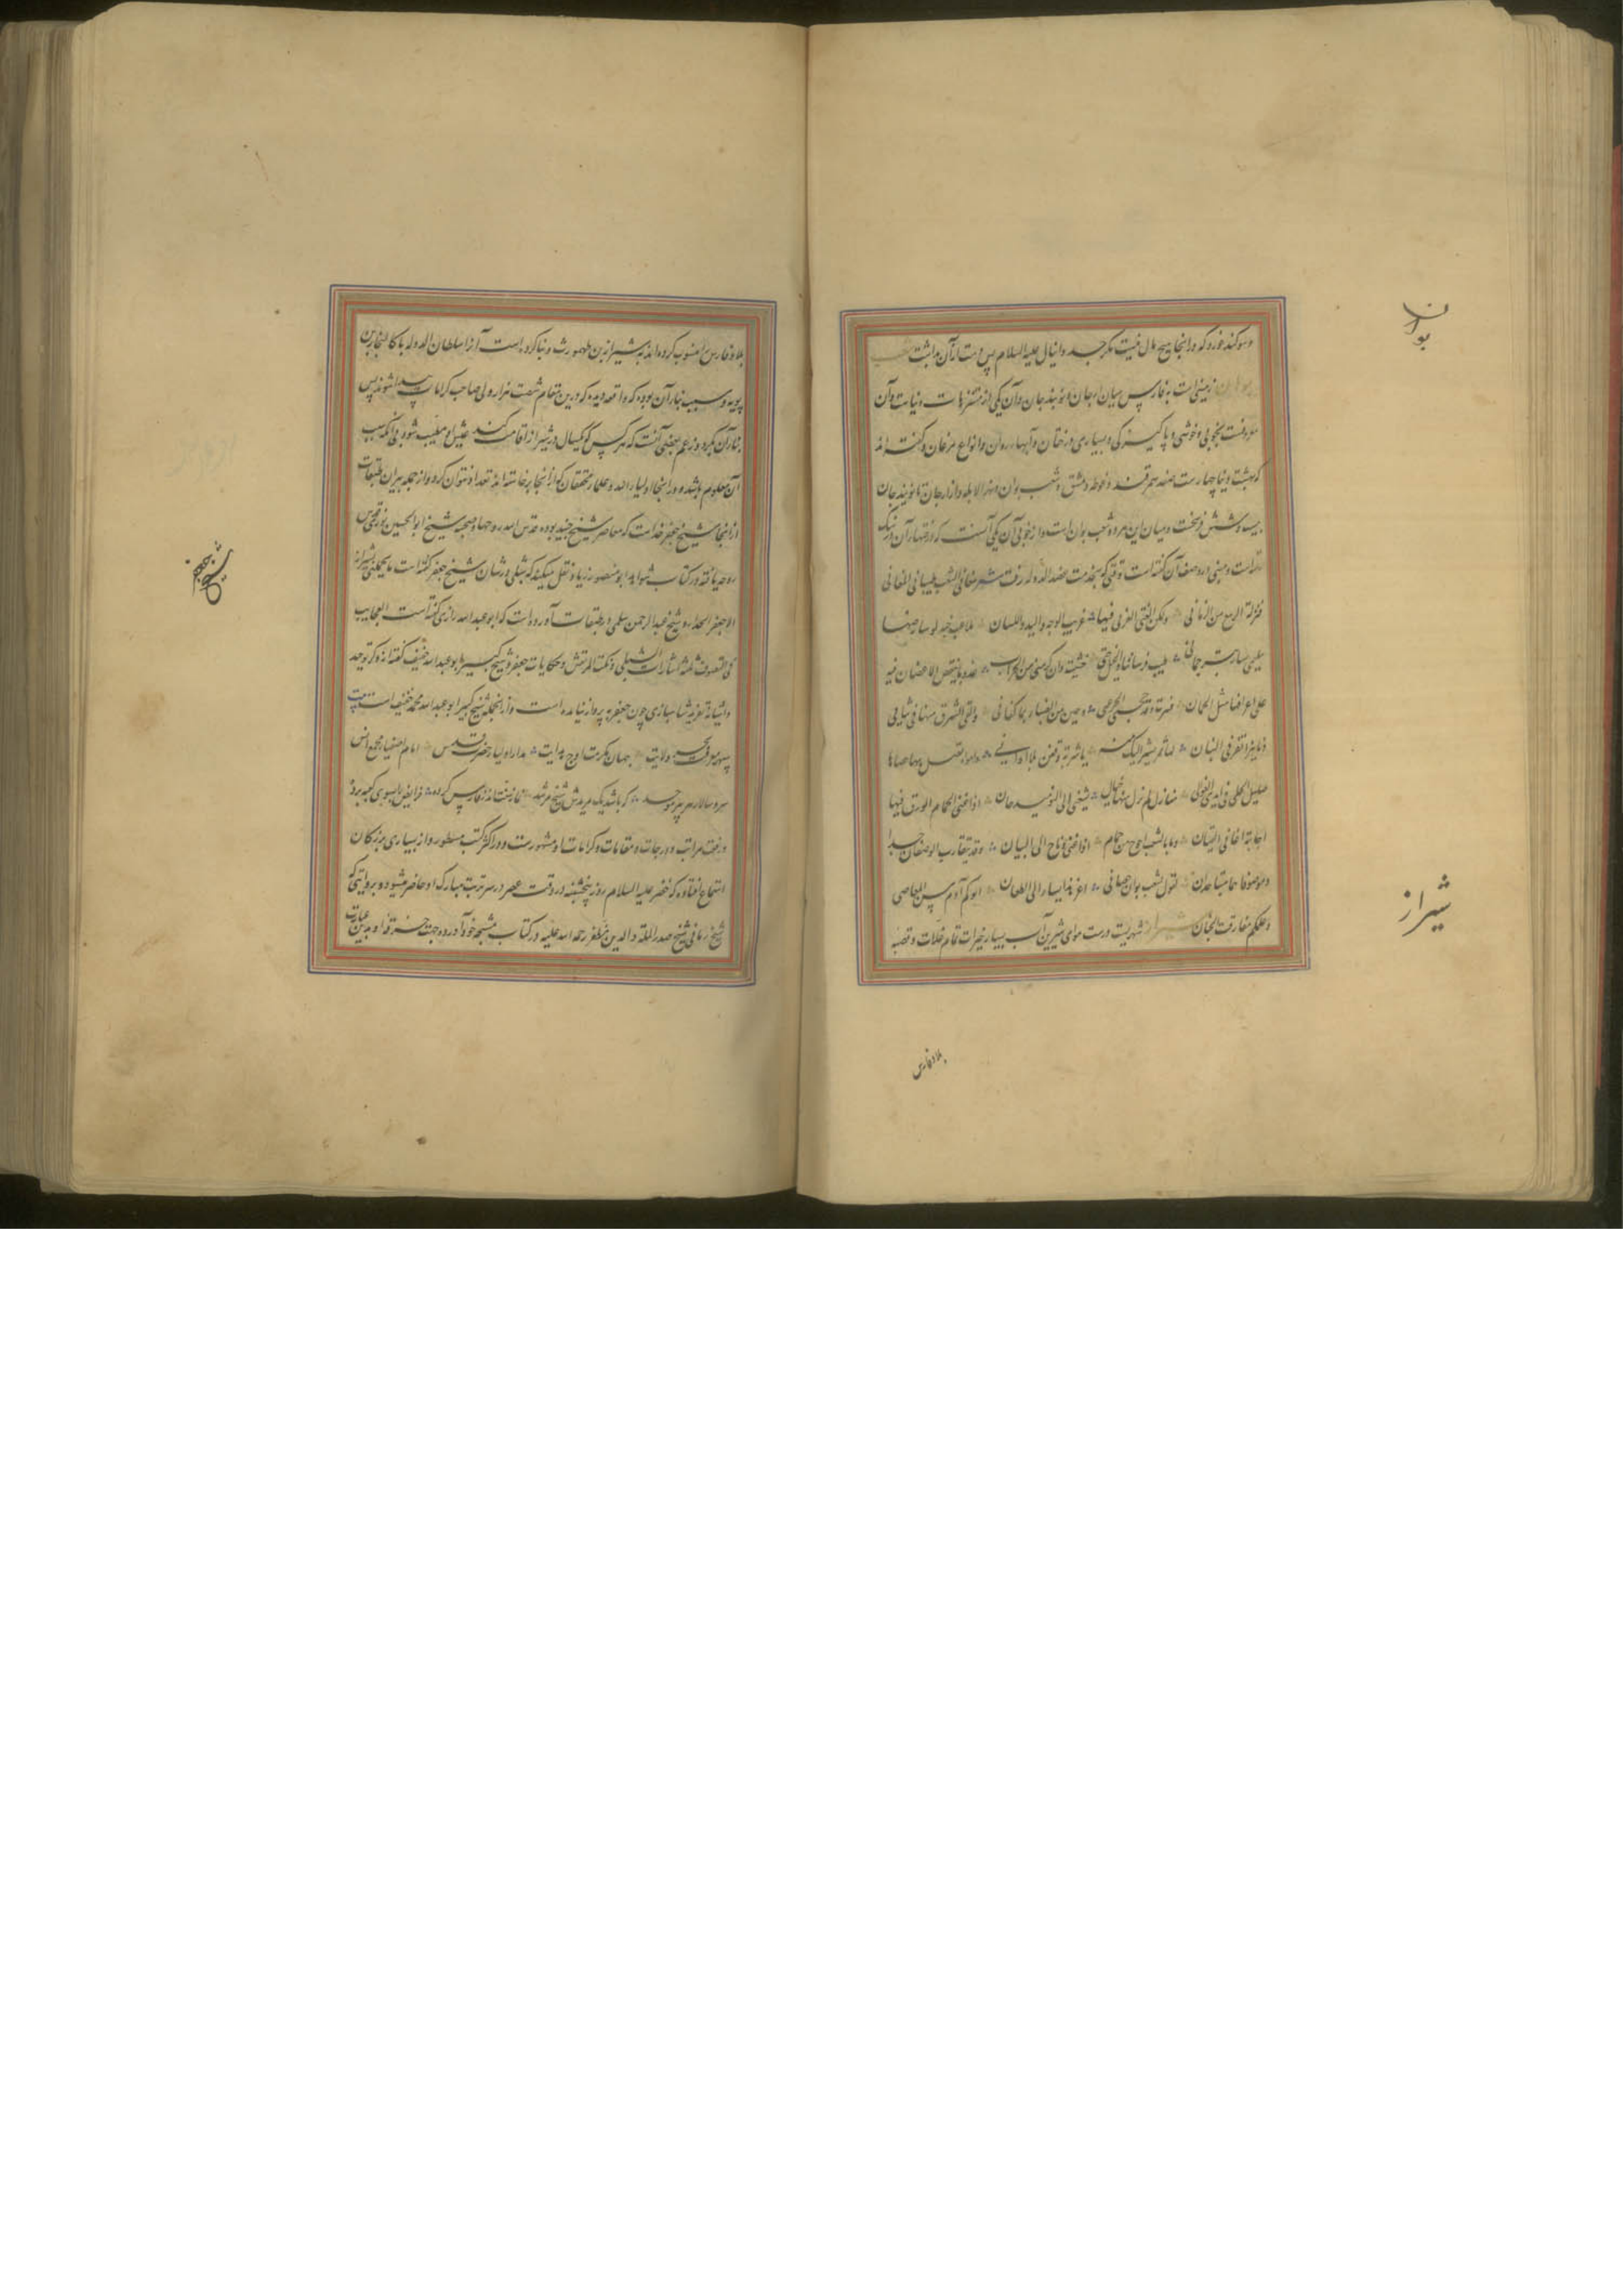 بوان
و سوگند خورد که در اینجا هیچ مال نیست مگر جسد دانیال علیه السلام پس دست از آن بداشت شعب
بوان زمینی است به فارس میان ارجان و نوبندجان و آن یکی از متنزهات دنیاست و آن
موصوفست بخوبی و خوشی و پاکیزگی و بسیاری درختان و آبهاء روان و انواع مرغان و گفته اند
که بهشت دنیا چهارست صغد سمرقند و غوطه دمشق و شعب بوان و نهر الابله و از ارجان تا نوبندجان
بیست و شش فرسخست و میان این هر دو شعب بوان است و از خوبی آن یکی آنست که درختهار آن در سنگ
است و متنبی در وصف آن گفته است وقتی که بخدمت عضد الدوله رفت شعر مغانی الشعب طیبا فی المغانی
بمنزلة الربیع من الزمانی ولکن الفتی العربی فیها غریب الوجه والید واللسان ملاعب جنة لو سار فیها
سلیمان لسار بترجمان طبت فرساننا والخیل حتی خشیت وان کرمن من الحران غدونا تنفض الاغصان فیه
علی اعرافها مثل الجمان فسرت وقد حجبن الحر عنی وجئن من الضیاء بما کفانی والقی الشرق منها فی ثیابی
دنانیرا تفر من البنان لها ثمر تشیر الیک منه باشربة وقفن بلا اوانی وامواه تصل بها حصاها
صلیل الحلی فی ایدی الغوانی منازل لم یزل منها خیال یشیعنی الی النوبندجان اذا غنی الحمام الورق فیها
اجابته اغانی القیان ومن بالشعب احوج من حمام اذا غنی وناح الی البیان وقد یتقارب الوصفان جدا
وموصوفاهما متباعدان یقول بشعب بوان حصانی اعن هذا یسار الی الطعان ابوکم آدم سن المعاصی
وعلمکم مفارقة الجنان شیراز شهریست درست هوای شیرین آب بسیار خیرات تمام غلات و قصبه
شیراز
بلاد فارس
بلاد فارس را منسوب کرده اند به شیراز بن طهمورث و بنا کرده است آنرا سلطان الدوله باکالنجار بن
بویه و سبب بناء آن بوده که واقعه دیده که درین مقام شصت هزار ولی صاحب کرامات پیدا شوند پس
بناء آن بکرد و زعم بعضی آنست که هر کس که یکسال در شیراز اقامت کند عیش او طیب شود بی آنکه سبب
آن معلوم باشد و در اینجا اولیاء الله و علماء محققان که از اینجا برخاسته اند تعداد نتوان کرد و از جمله پیران طبقات
از اینجا شیخ جعفر حذاست که معاصر شیخ جنید بوده قدس الله روحهما و صحبت شیخ ابوالحسین
روحه یافته و در کتاب شواهد ابو منصور زیاد نقل میکند که شبلی در شان شیخ جعفر گفته است
الا جعفر الحذاء و شیخ عبد الرحمن سلمی در طبقات آورده است که ابو عبد الله رازی گفته است العجایب
فی التصوف ثلثه اشارات الشبلی و نکت المرتعش و حکایات جعفر و شیخ کبیر ابو عبد الله خفیف گفته از وکر توحید
و آشیانه تفرید شاهبازی چون جعفر به پرواز نیامده است و از آنجمله شیخ کبیر ابو عبد الله محمد خفیف است بیت
سپهر معرفت بحر ولایت جهان مکرمت اوج هدایت مدار اولیا حضرت قدس امام اصفیا مجمع انس
سر و سالار هر پیر موحد که باشد یک مریدش شیخ مرشد
رفعت مراتب و درجات و مقامات و کرامات او مشهورست و در اکثر کتب مسطور و از بسیاری بزرگان
استماع افتاده که خضر علیه السلام روز پنجشنبه در وقت عصر در سر تربت مبارک او حاضر میشود و بروایتی که
شیخ شیخ صدر الملة والدین مظفر رحمة الله علیه در کتاب مشیخه خود آورده جهت خرقه او بدین عبارت
شیخ جعفر